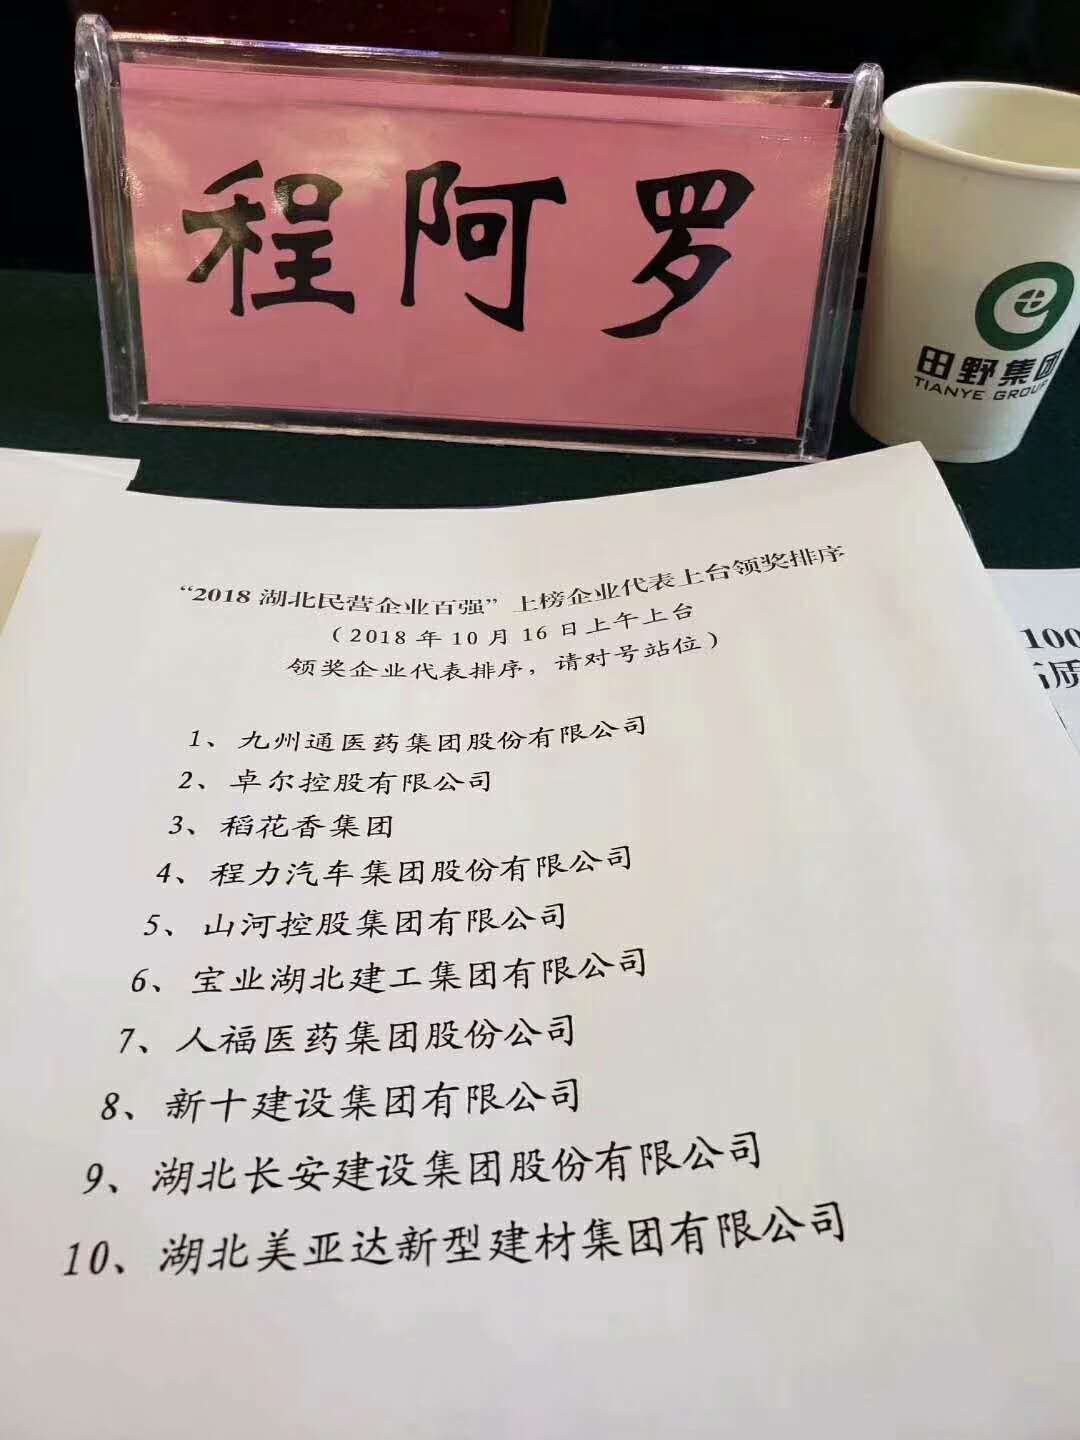 程阿罗
田野集团
TIANYE GROUP
“2018 湖北民营企业百强”上榜企业代表上台领奖排序
（2018 年 10 月 16 日上午上台
领奖企业代表排序，请对号站位）
1、九州通医药集团股份有限公司
2、卓尔控股有限公司
3、稻花香集团
4、程力汽车集团股份有限公司
5、山河控股集团有限公司
6、宝业湖北建工集团有限公司
7、人福医药集团股份公司
8、新十建设集团有限公司
9、湖北长安建设集团股份有限公司
10、湖北美亚达新型建材集团有限公司
100
质